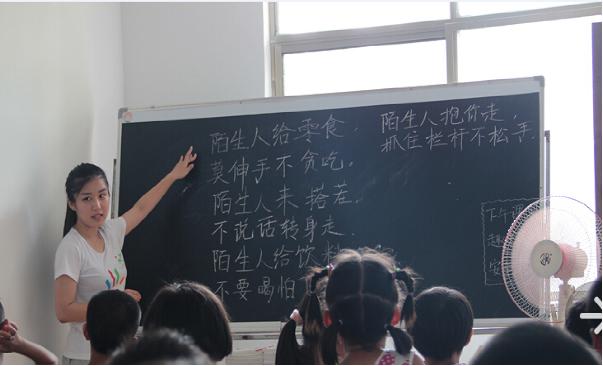 陌生人给零食，
莫伸手不贪吃。
陌生人来搭茬，
不说话转身走．
陌生人给饮料
不要喝怕
陌生人抱你走，
抓住栏杆不松手
下午
趣
安